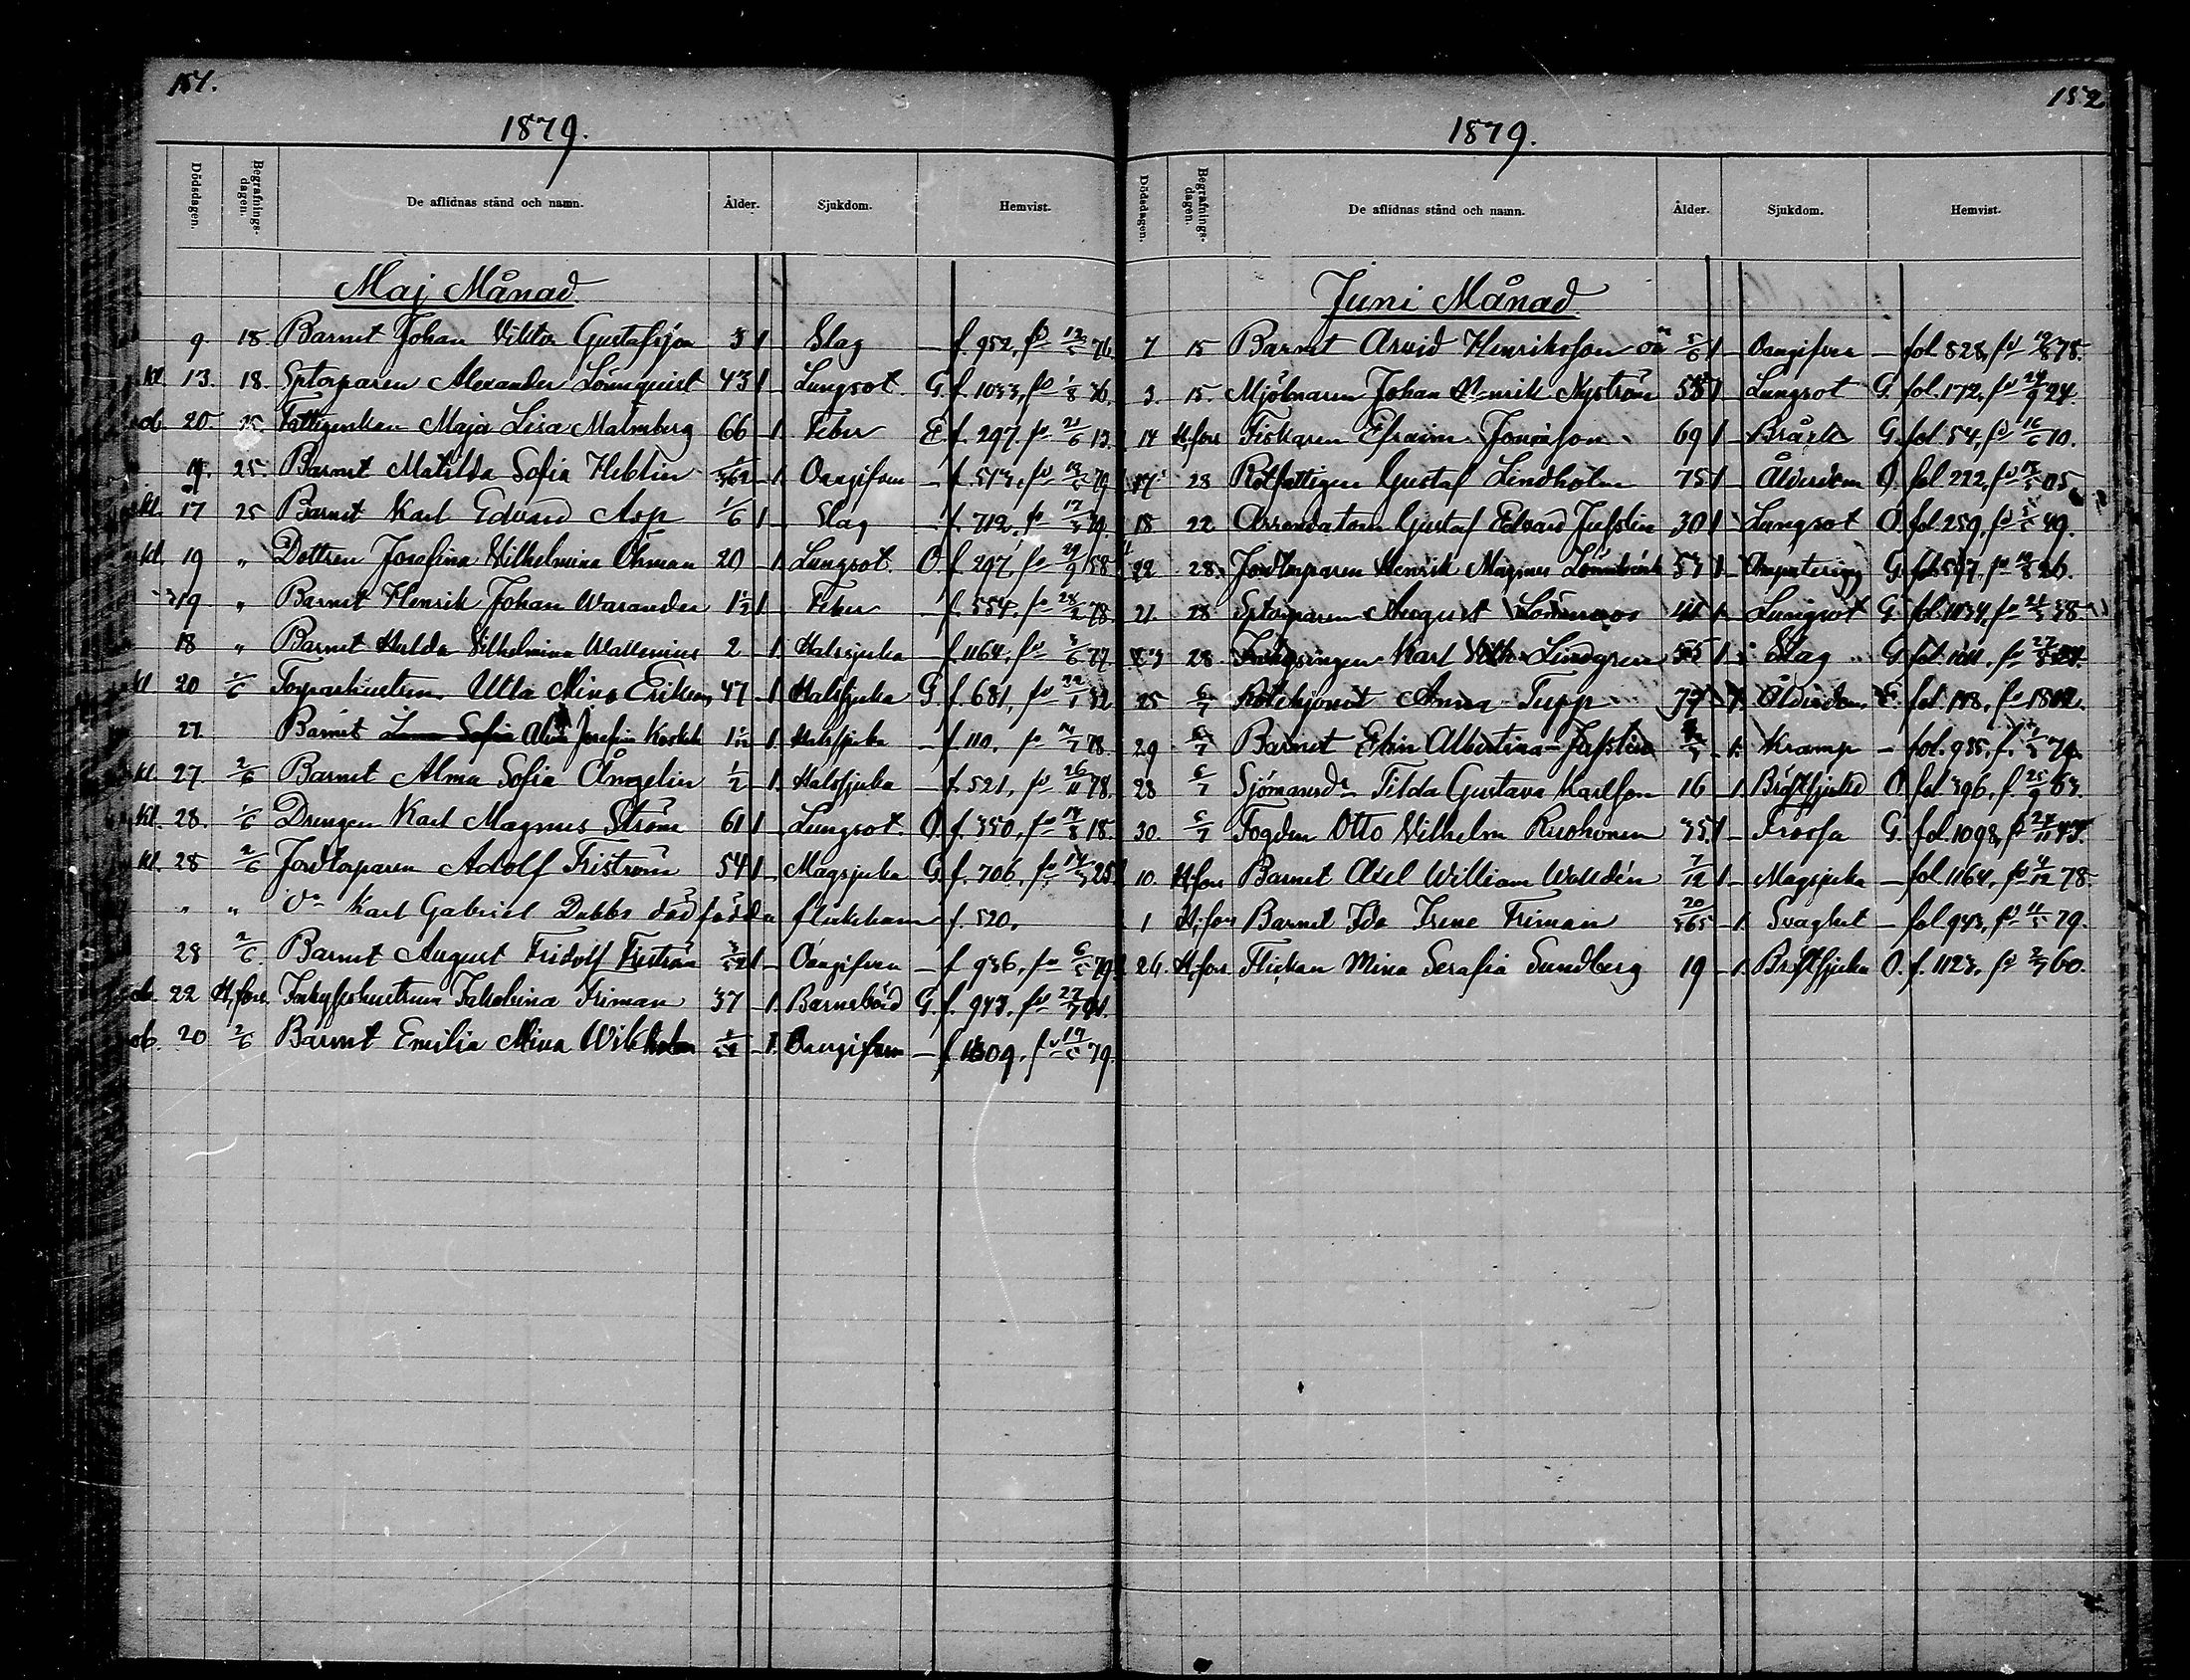 151.
1879.
Dödsdagen. Begrafnings-dagen. De aflidnas stånd och namn. Ålder. Sjukdom. Hemvist.
Maj Månad
9. 18. Barnet Johan Viktor Gustafsson 3 1 Slag — f. 952, 76
kl. 13. 18. Sptorparen Alexander Lönnquist 43 1 Lungsot. G. f. 1033, 1/8 36.
ob. 20. 25 Fattigenkan Maja Lisa Malmberg 66 — 1. Feber E. f. 297. fö 21/6 13.
19. 25. Barnet Matilda Sofia Heblin — 1. Oangifven — f. 513, 79
kl. 17 25 Barnet Karl Edvard Asp 1/6 1 Slag — f. 712. fö 17/3 79.
kl. 19 " Dottren Josefina Vilhelmina Öhman 20 — 1. Lungsot. O. f. 297, fö 29/9 58
19 " Barnet Henrik Johan Warander 1½ 1 Feber — f. 554. fö 28/2 78.
18 " Barnet Hulda Vilhelmina Wallenius 2 — 1. Halssjuka — f. 1164. fö 3/6 77.
kl 20 2/6 Torparhustrun Ulla Mina Erikson 47 — 1 Halssjuka G. f. 681, fö 22/1 32
27. Barnet Josefin 1½ 1 Halssjuka — f. 110. fö 78.
kl. 27. 2/6 Barnet Alma Sofia Ångelin 1/2 — 1. Halssjuka — f. 521, fö 26/11 78.
kl. 28. 2/6 Drengen Karl Magnus Ström 61 1 Lungsot. O. f. 350, fö 14/8 18.
kl. 28 2/6 Jordtorparen Adolf Friström 54 1 Magsjuka G. f. 706, fö 14/3 25
" " Karl Gabriel Dubbs dödfödda flickbarn f. 520.
28 2/6. Barnet August Fridolf Friström 3/52 1 — Oangifven — f 936, fö 6/5 79
ob. 22 H.fors. Jakobina Friman 37 — 1. Barnsbörd G. f. 943, fö 27/7
ob. 20 2/6 Barnet Emilia Mina Wikholm — 1. Oangifven — f 1309, fö 19/5 79.
152
1879.
Dödsdagen. Begrafnings-dagen. De aflidnas stånd och namn. Ålder. Sjukdom. Hemvist.
Juni Månad
7 15 Barnet Arvid Henriksson 5/6 1 — Oangifven — fol. 828, fö 78.
3. 15. Mjölnaren Johan Henrik Nyström 1 — Lungsot G. fol. 172, fö 24/9 24.
14 H.fors Fiskaren Efraim 69 1 — Bråck G. fol. 54, fö 16/6 10.
17 28 Rotfattigen Gustaf Lindholm 75 1 — Ålderdom O. fol 222, fö
18 22 Arrendatorn Gustaf Edvard Jusslin 30 1 Lungsot O. fol. 259, fö 49.
22 28. Jordtorparen Henrik Magnus 53 1 G. fol. 507, fö 26.
21. 28 Sptorparen August 41 1. Lungsot G. fol. 1034, fö 38.
28. Karl Lindgren 1 Slag G
25 6/7 Rotehjonet Anna Tupp 77 1. Ålderdom E. fol. 118, fö 1802.
29 6/7 Barnet Elin Albertina Jusslin — 1. Kramp — fol. 985. 79.
28 6/7 Sjömansd:r Tilda Gustava Karlson 16 — 1. Bröstsjuka O. fol. 396, f. 25/9 63.
30. 6/7 Fogden Otto Vilhelm Ruohonen 35. 1 — Frossa G. fol. 1098,
10. H.fors Barnet Axel William Walldén 7/12 1 — Magsjuka — fol. 1164, fö 4/12 78.
1 H.fors Barnet Ida Irene Friman 20/365 — 1. Svaghet — fol. 943, fö 11/5 79.
26. H.fors Flickan Mina Serafia Sundberg 19 — 1. Bröstsjuka O. f. 1123, fö 3/7 60.